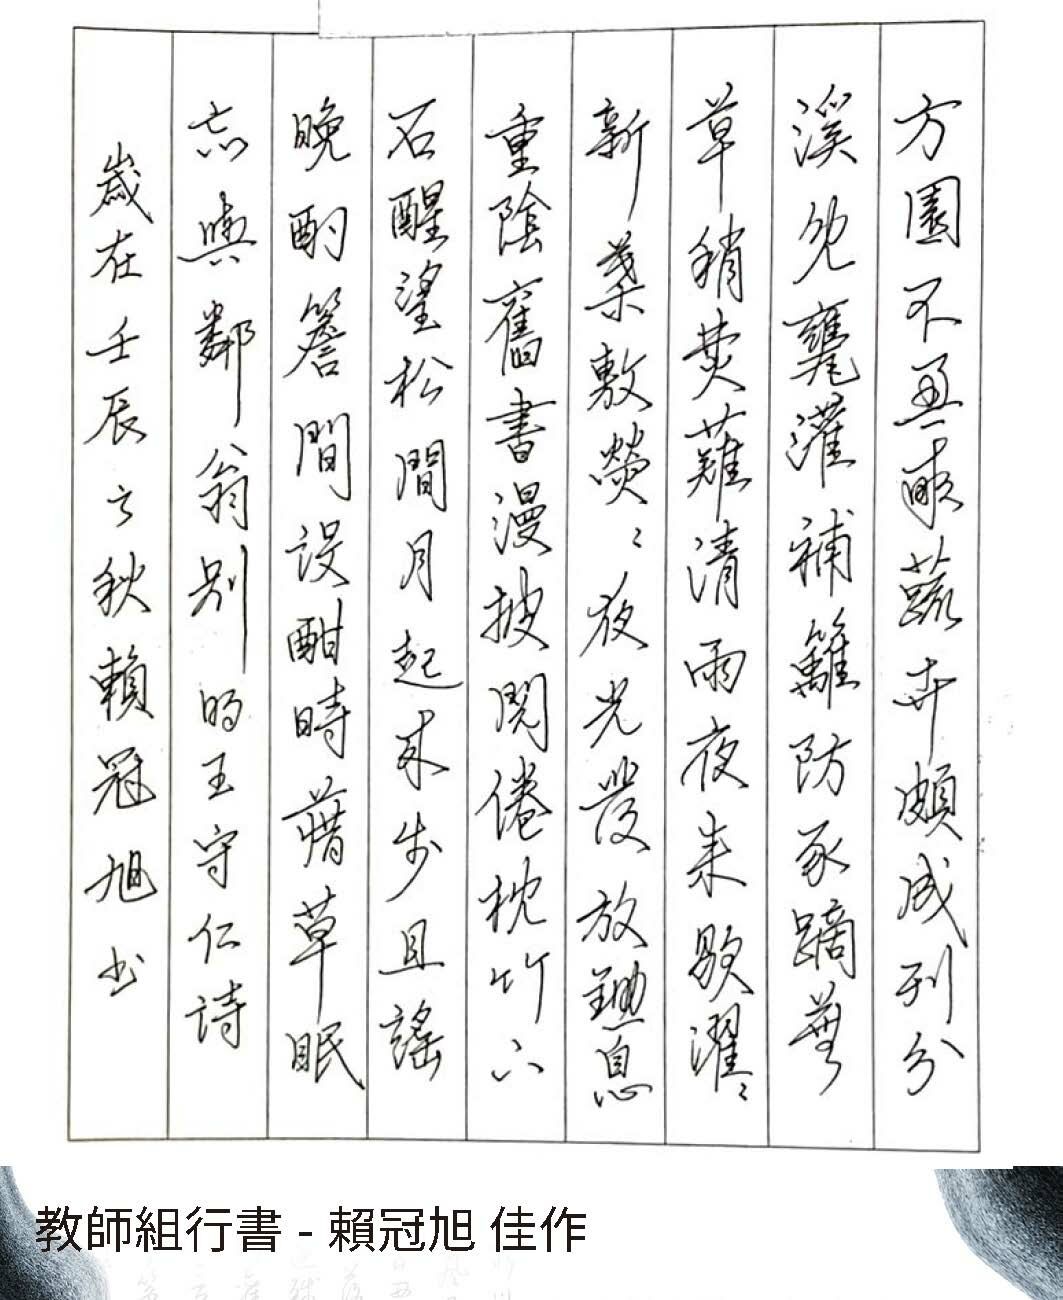 方園不盈畝蔬卉頗成列分
溪免甕灌補籬防豕蹢蕪
草稍焚薙清雨夜來歇濯〻
新葉敷熒〻夜光發放鋤息
重陰舊書漫披閱倦枕竹下
石醒望松間月起來步且謠
晚酌簷間設酣時藉草眠
忘與鄰翁別 明王守仁詩
歲在壬辰之秋賴冠旭書
教師組行書 - 賴冠旭 佳作